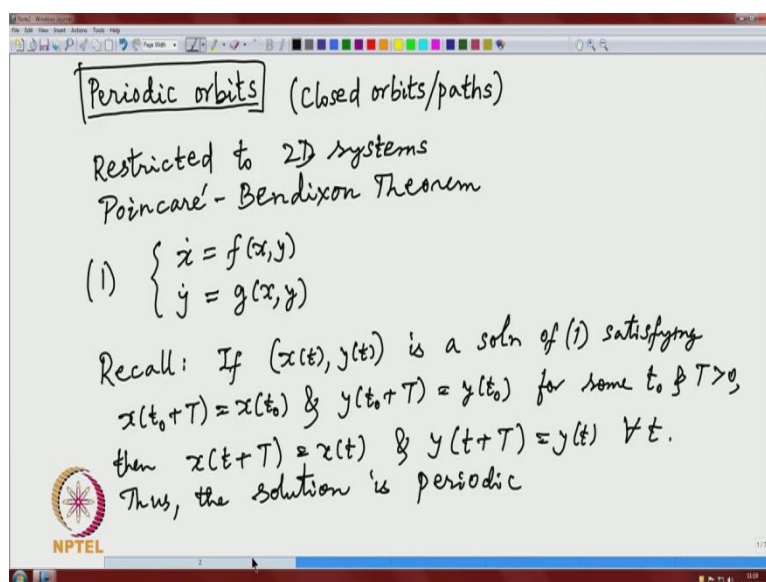 Note2 - Windows Journal
File Edit View Insert Actions Tools Help
Page Width
Periodic orbits (Closed orbits/paths)
Restricted to 2D systems
Poincaré - Bendixon Theorem
(1) { ẋ = f(x,y)
ẏ = g(x,y)
Recall: If (x(t), y(t)) is a soln of (1) satisfying
x(t₀+T) = x(t₀) & y(t₀+T) = y(t₀) for some t₀ & T>0,
then x(t+T) = x(t) & y(t+T) = y(t) ∀ t.
Thus, the solution is periodic
NPTEL
2